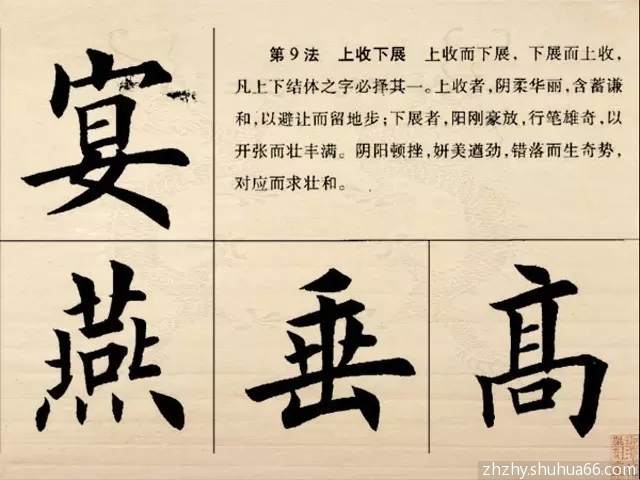 宴
第9法 上收下展 上收而下展，下展而上收，
凡上下结体之字必择其一。上收者，阴柔华丽，含蓄谦
和，以避让而留地步；下展者，阳刚豪放，行笔雄奇，以
开张而壮丰满。阴阳顿挫，妍美遒劲，错落而生奇势，
对应而求壮和。
燕
垂
髙
zhzhy.shuhua66.com